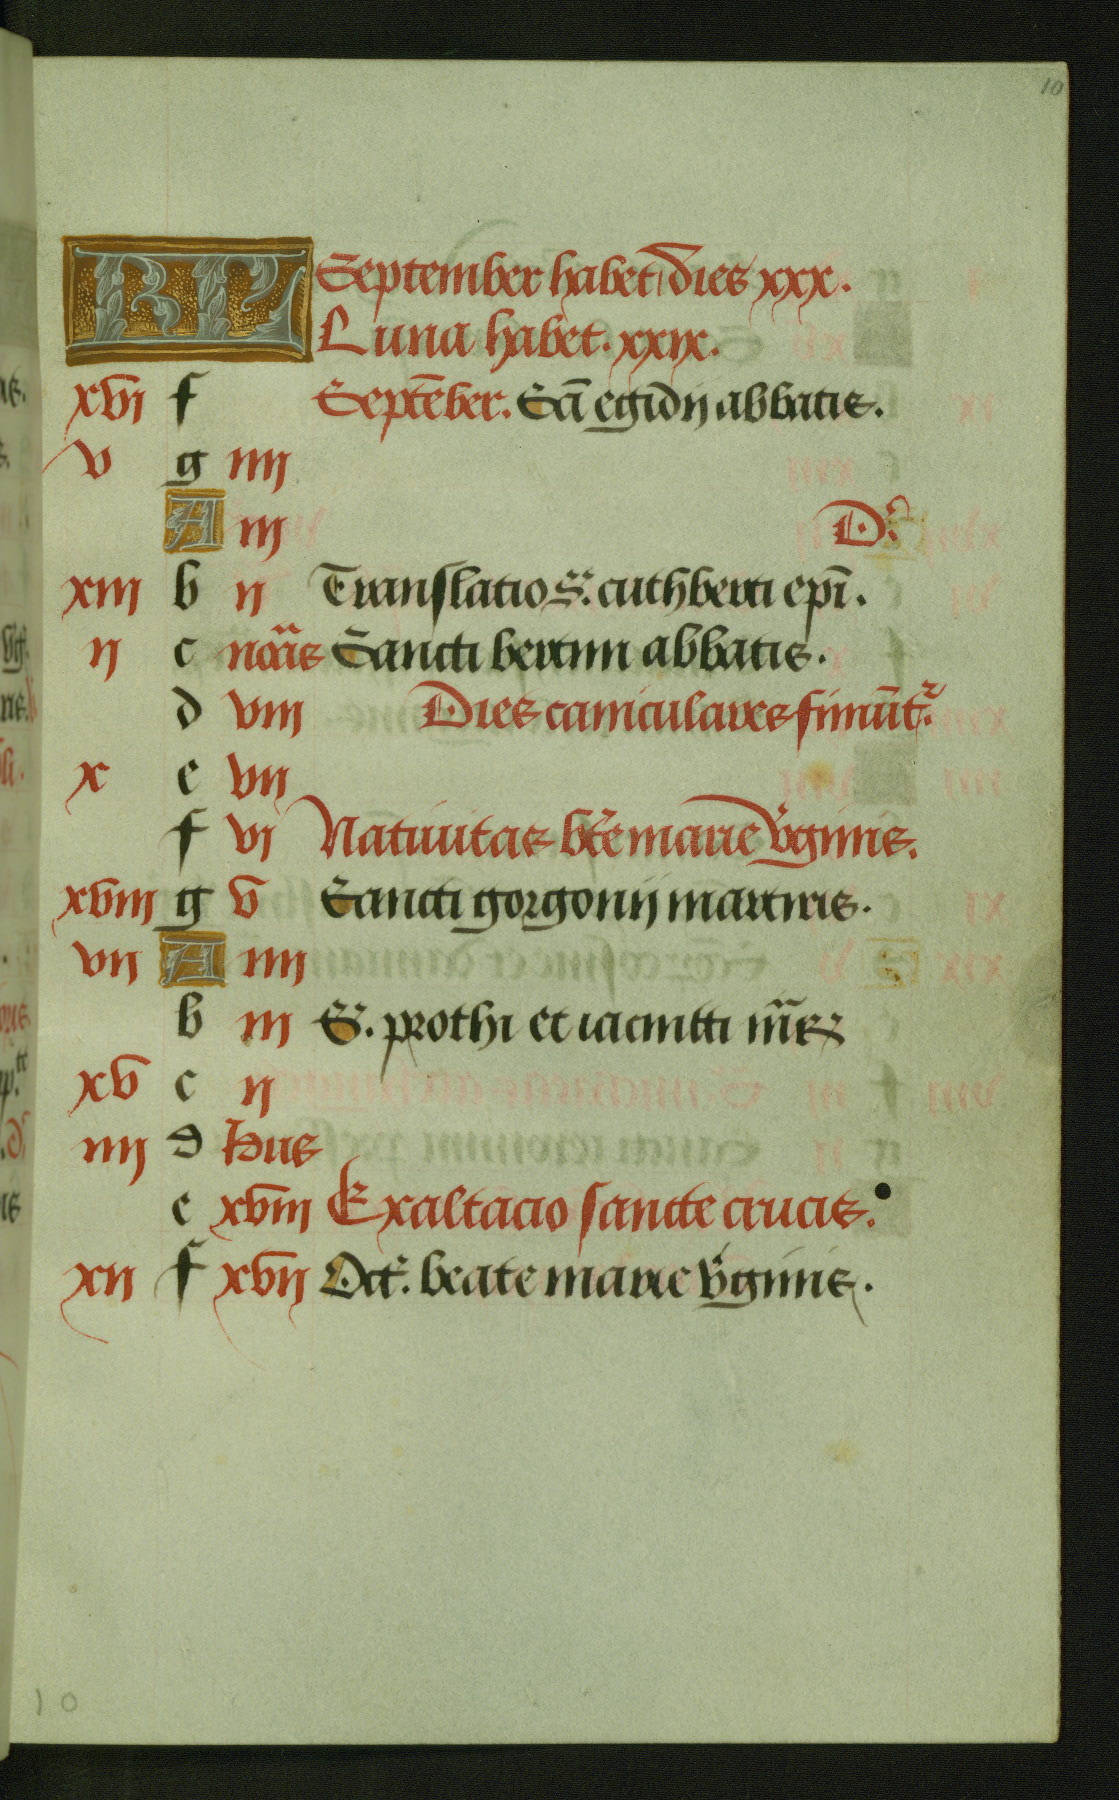 10
KL September habet dies xxx.
Luna habet. xxix.
xvi f Septẽber. Scī egidij abbatis.
v g iiij
A iij D.
xiii b ij Translatio S. cuthberti epī.
ij c nōas Sancti bertini abbatis.
d viii Dies caniculares finiūt.
x e vij
f vi Natiuitas btē marie v̄ginis.
xviii g v Sancti gorgonij martiris.
vij A iiij
b iij S. prothi et iacincti mr̄
xv c ij
iiij d Idus
e xviii Exaltacio sancte crucis.
xij f xvij Oct. beate marie v̄ginis.
10